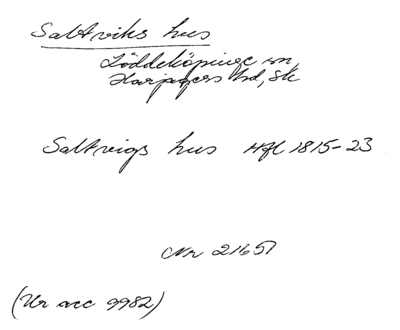 Saltviks hus
Löddeköpinge sn,
Harjagers hd, Sk
Saltvigs hus Hfl 1815-23
Nr 21651
(Ur acc 9982)